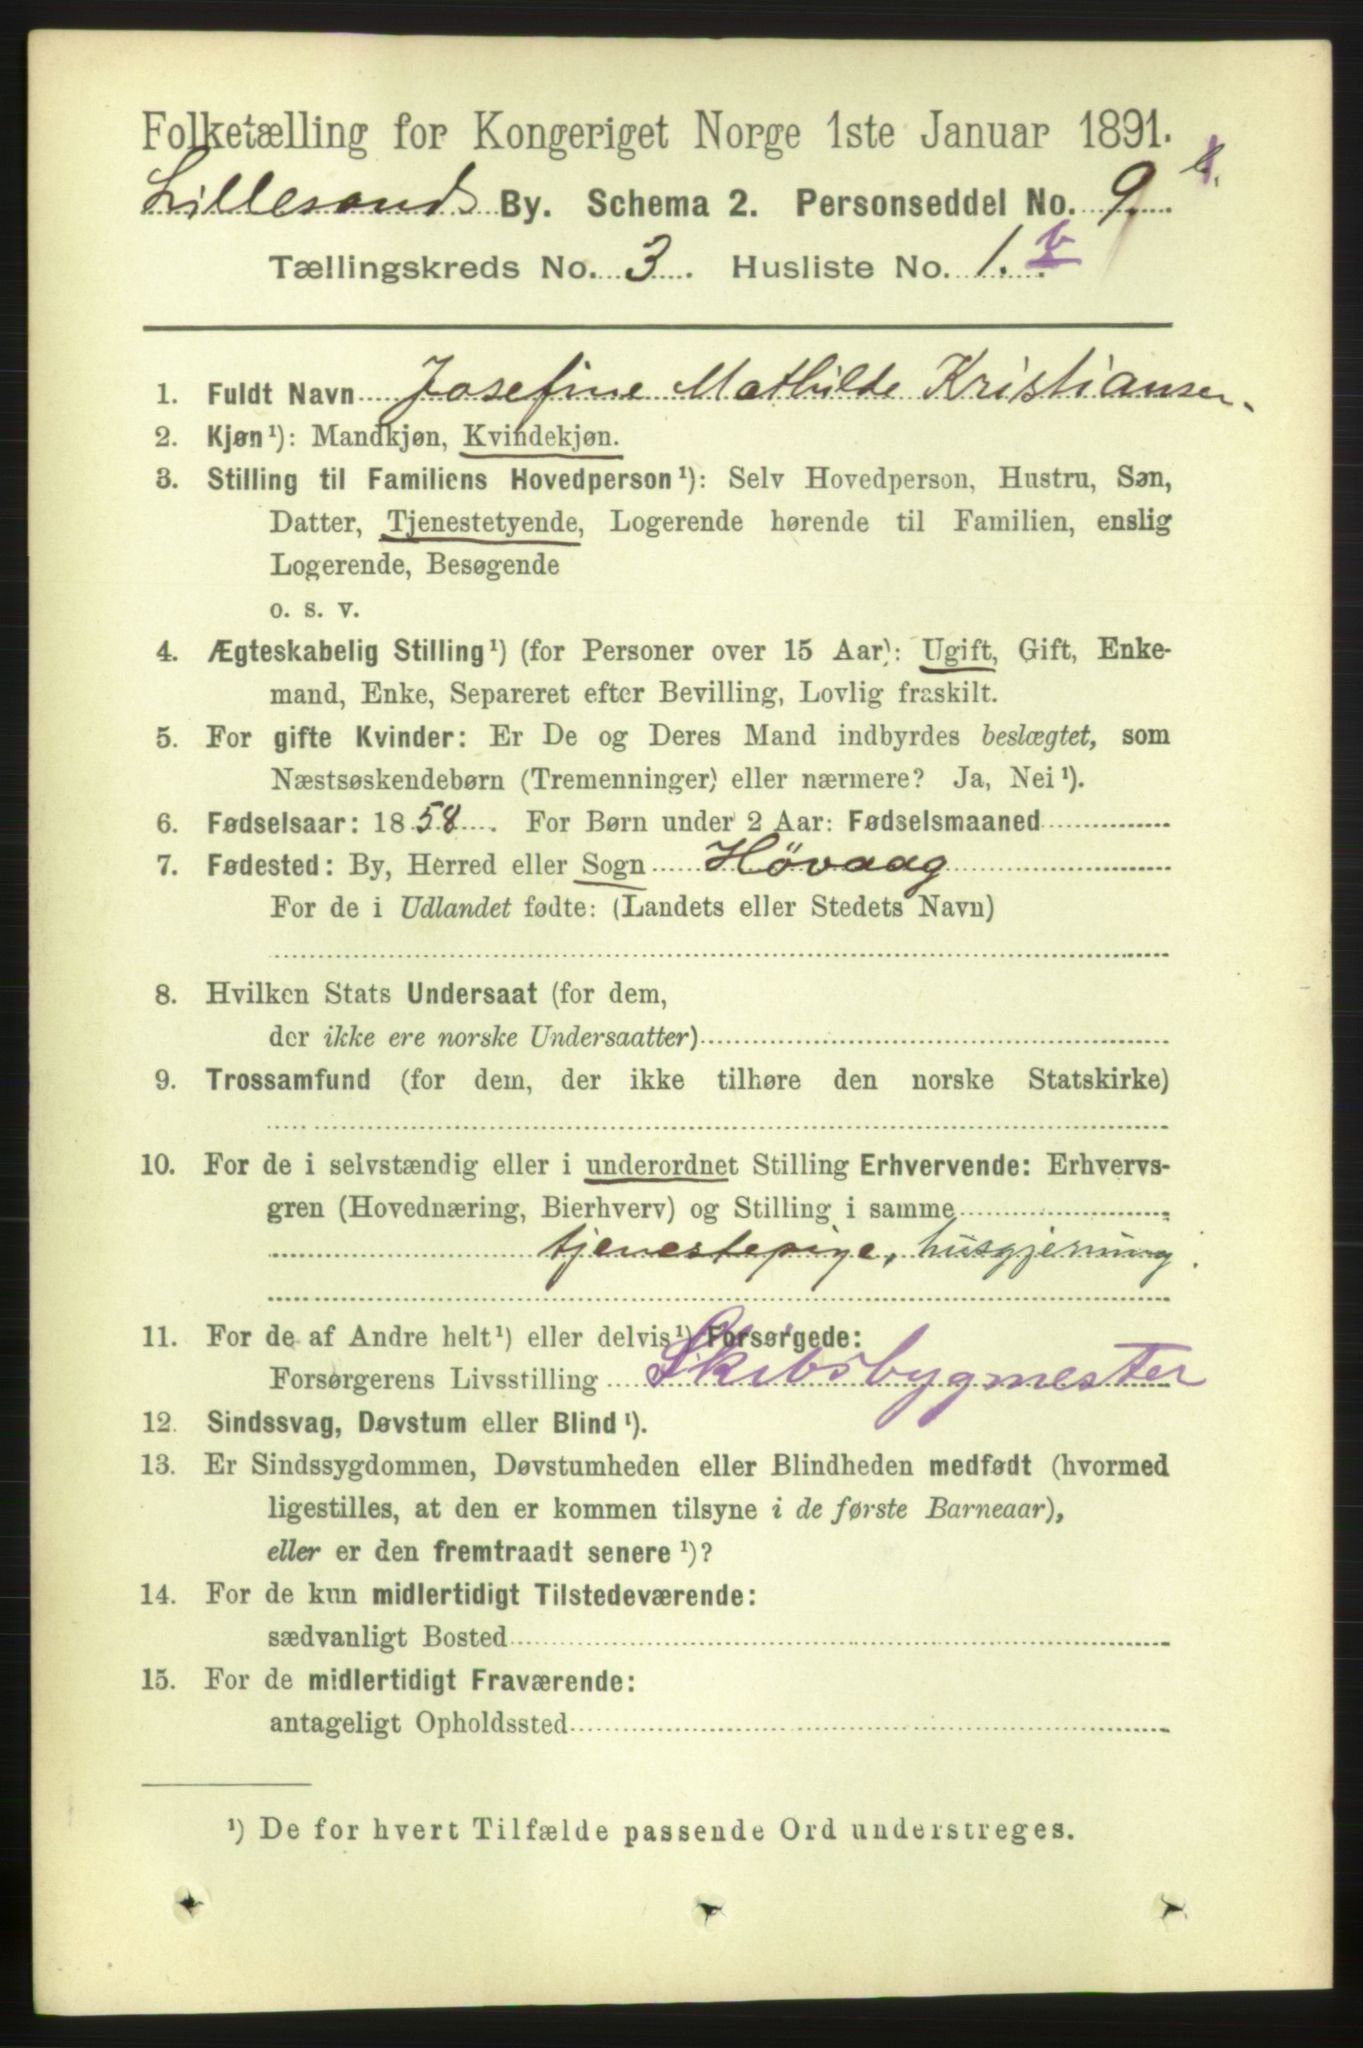 Folketælling for Kongeriget Norge 1ste Januar 1891.
Lillesands By. Schema 2. Personseddel No. 9.
Tællingskreds No. 3. Husliste No. 1.
1. Fuldt Navn Josefine Mathilde Kristiansen.
2. Kjøn¹): Mandkjøn, Kvindekjøn.
3. Stilling til Familiens Hovedperson¹): Selv Hovedperson, Hustru, Søn,
Datter, Tjenestetyende, Logerende hørende til Familien, enslig
Logerende, Besøgende
o. s. v.
4. Ægteskabelig Stilling¹) (for Personer over 15 Aar): Ugift, Gift, Enke-
mand, Enke, Separeret efter Bevilling, Lovlig fraskilt.
5. For gifte Kvinder: Er De og Deres Mand indbyrdes beslægtet, som
Næstsøskendebørn (Tremenninger) eller nærmere? Ja, Nei¹).
6. Fødselsaar: 1858. For Børn under 2 Aar: Fødselsmaaned
7. Fødested: By, Herred eller Sogn Hövaag
For de i Udlandet fødte: (Landets eller Stedets Navn)
8. Hvilken Stats Undersaat (for dem,
der ikke ere norske Undersaatter)
9. Trossamfund (for dem, der ikke tilhøre den norske Statskirke)
10. For de i selvstændig eller i underordnet Stilling Erhvervende: Erhvervs-
gren (Hovednæring, Bierhverv) og Stilling i samme
tjenestepige, husgjerning.
11. For de af Andre helt¹) eller delvis¹) Forsørgede:
Forsørgerens Livsstilling Skibsbygmester
12. Sindssvag, Døvstum eller Blind¹).
13. Er Sindssygdommen, Døvstumheden eller Blindheden medfødt (hvormed
ligestilles, at den er kommen tilsyne i de første Barneaar),
eller er den fremtraadt senere¹)?
14. For de kun midlertidigt Tilstedeværende:
sædvanligt Bosted
15. For de midlertidigt Fraværende:
antageligt Opholdssted
¹) De for hvert Tilfælde passende Ord understreges.